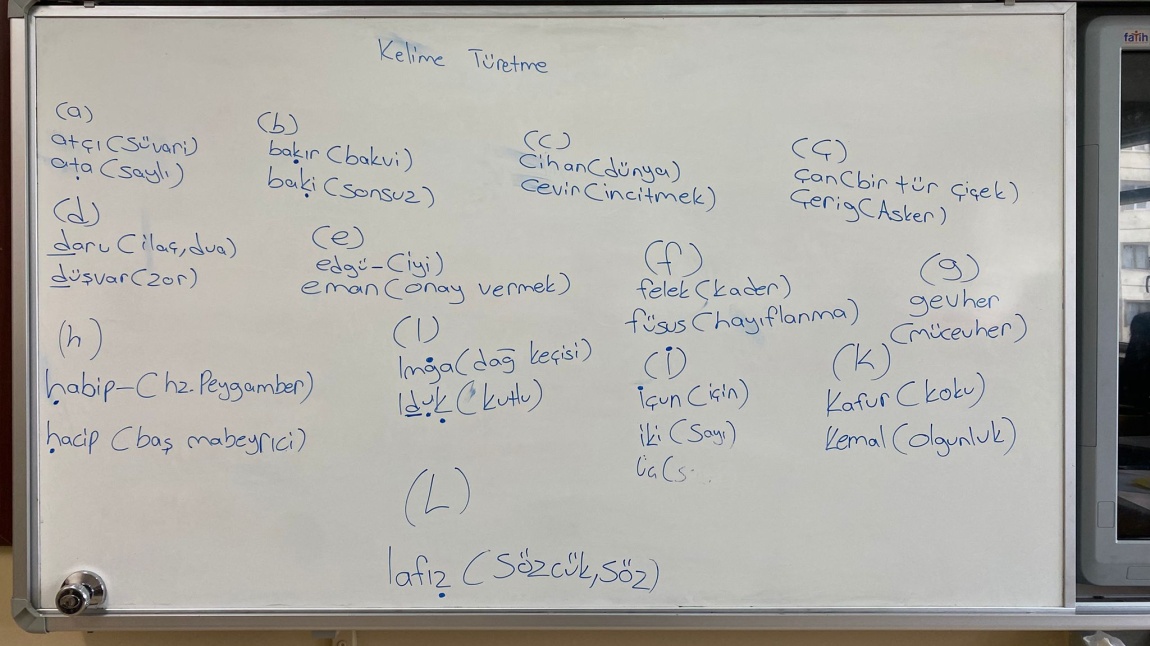 Kelime Türetme
fatih
(a)
atçı (Süvari)
aṭa (saylı)
(b)
baḳır (bakvi)
baḳi (sonsuz)
(c)
Cihan (dünya)
Cevir (incitmek)
(Ç)
Çan (bir tür çiçek)
Çerig (Asker)
(d)
ḏaru (ilaç, dua)
ḏüşvar (zor)
(e)
edgü-(iyi)
eman (onay vermek)
(f)
felek (kader)
füsus (hayıflanma)
(g)
gevher
(mücevher)
(h)
ḥabip-(hz. Peygamber)
ḥacip (baş mabeyrıci)
(I)
Imġa (dağ keçisi)
Iḏuḳ (kutlu)
(İ)
İçun (için)
iki (Sayı)
(k)
Kafur (koku)
Kemal (olgunluk)
(L)
lafıẓ (Sözcük, söz)